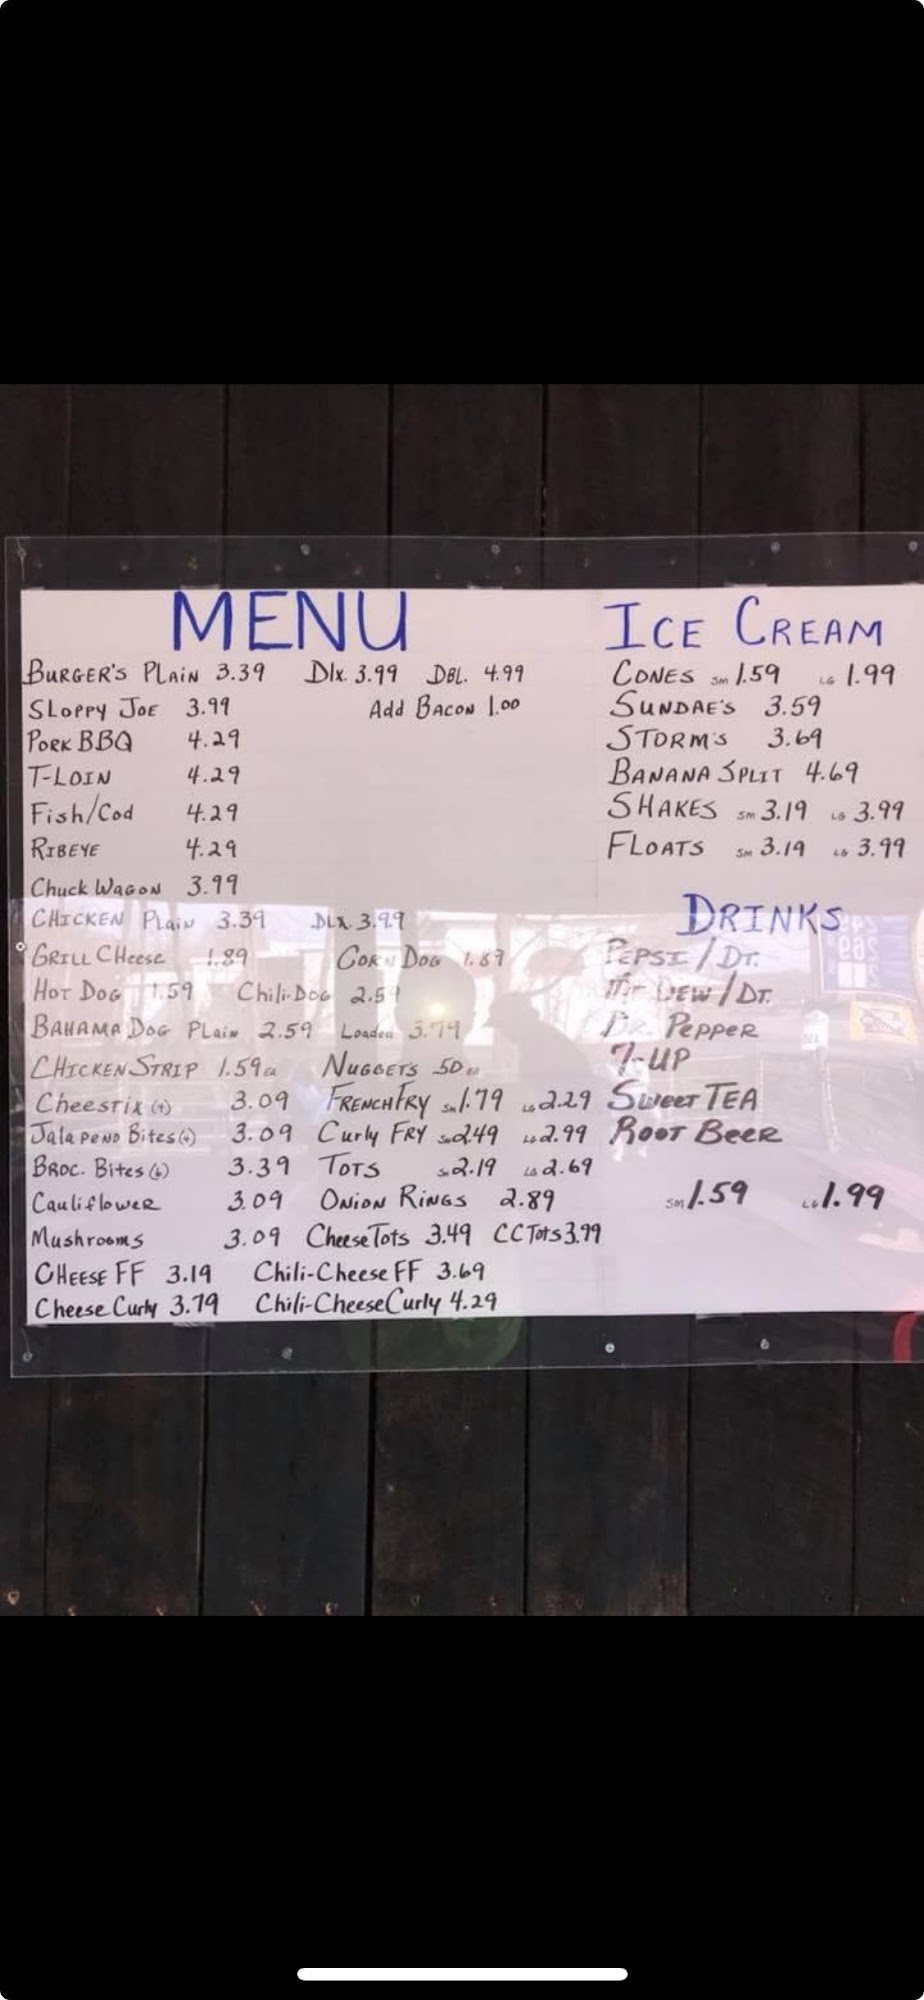 MENU
BURGER'S PLAIN 3.39 Dlx. 3.99 DBL. 4.99
SLOPPY JOE 3.99 Add BACON 1.00
PORK BBQ 4.29
T-LOIN 4.29
Fish/Cod 4.29
RIBEYE 4.29
Chuck WAGON 3.99
CHICKEN Plain 3.39 DLX 3.99
GRILL CHeese 1.89 CORN DOG 1.89
HOT DOG 1.59 Chili-Dog 2.59
BAHAMA DOG PLain 2.59 Loaded 3.79
CHICKEN STRIP 1.59 ea NUGGETS .50 ea
Cheestix (4) 3.09 FRENCH FRY sm 1.79 LG 2.29
Jalapeno Bites (6) 3.09 Curly FRY sm 2.49 LG 2.99
BROC. Bites (6) 3.39 TOTS sm 2.19 LG 2.69
Cauliflower 3.09 ONION RINGS 2.89
Mushrooms 3.09 Cheese Tots 3.49 CC Tots 3.99
CHEESE FF 3.19 Chili-Cheese FF 3.69
Cheese Curly 3.79 Chili-Cheese Curly 4.29
ICE CREAM
CONES sm 1.59 LG 1.99
SUNDAE'S 3.59
STORM'S 3.69
BANANA SPLIT 4.69
SHAKES sm 3.19 LG 3.99
FLOATS sm 3.19 LG 3.99
DRINKS
PEPSI / DT.
MT DEW / DT.
DR. PEPPER
7-UP
SWEET TEA
ROOT BEER
sm 1.59 LG 1.99